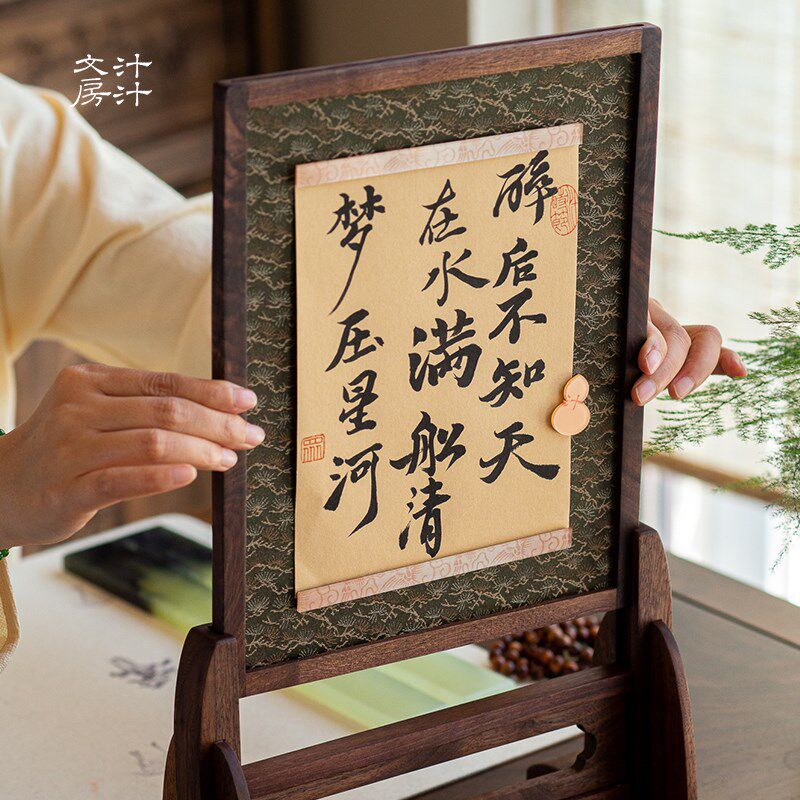 汁汁
文房
醉后不知天
在水满船清
梦压星河